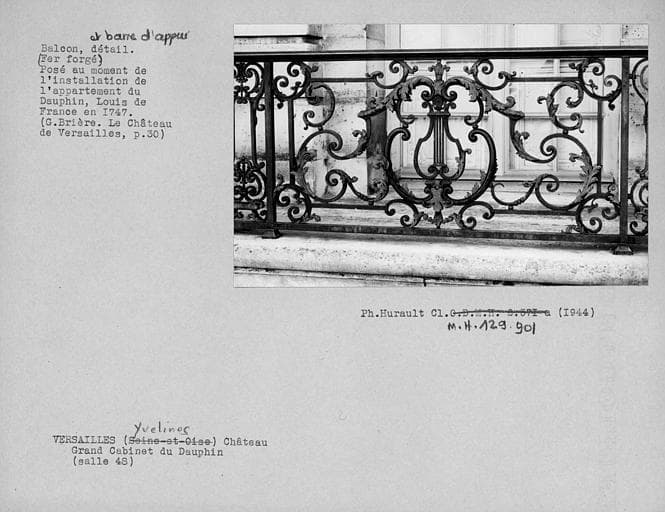 et barre d'appui
Balcon, détail.
(Fer forgé)
Posé au moment de
l'installation de
l'appartement du
Dauphin, Louis de
France en I747.
(G.Brière. Le Château
de Versailles, p.30)
Ph.Hurault Cl. (I944)
M.H.129.901
Yvelines
VERSAILLES (Seine-et-Oise) Château
Grand Cabinet du Dauphin
(salle 48)